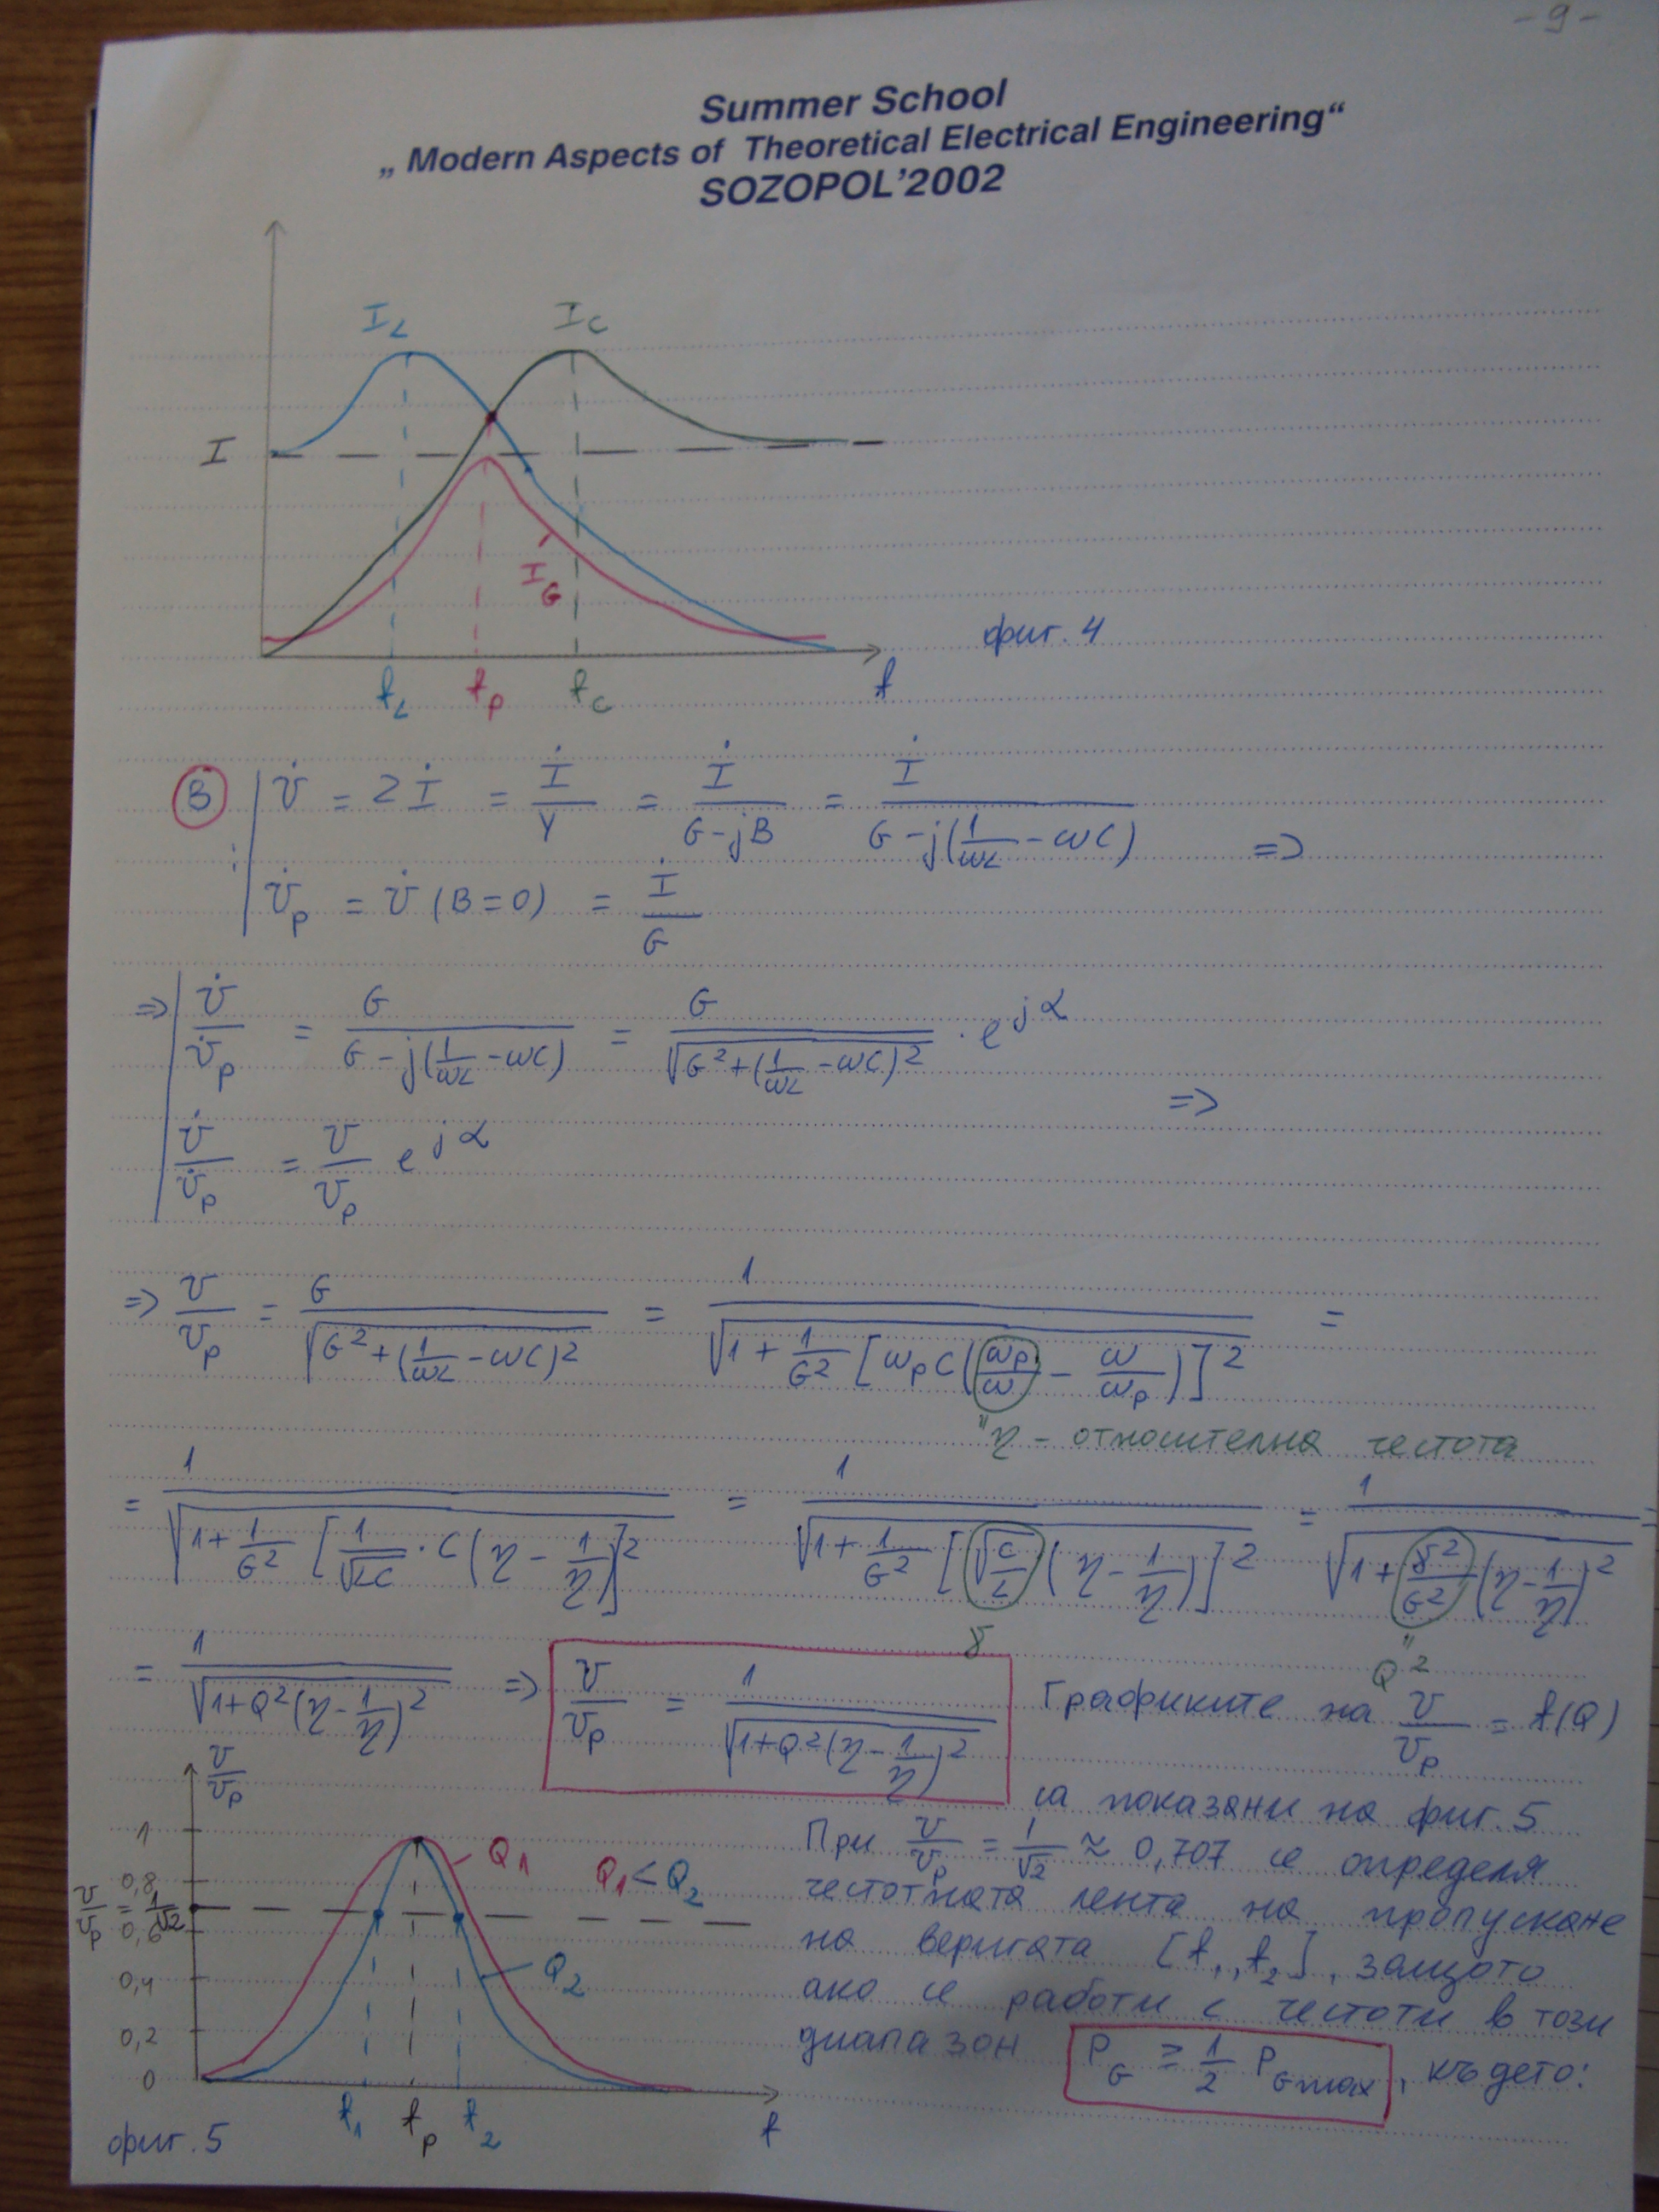 - 9 -
Summer School
„ Modern Aspects of Theoretical Electrical Engineering“
SOZOPOL’2002
I_L I_C
I
I_G
фиг. 4
f_L f_p f_C f
(В) | U̇ = Z İ = İ/Y = İ/(G-jB) = İ/(G-j(1/ωL - ωC)) =>
: | U̇_p = U̇ (B=0) = İ/G
=> | U̇/U̇_p = G/(G-j(1/ωL - ωC)) = G/√(G²+(1/ωL - ωC)²) · e^jα
=>
| U̇/U̇_p = U/U_p e^jα
=> U/U_p = G/√(G²+(1/ωL - ωC)²) = 1/√(1+1/G² [ω_p C(ω_p/ω - ω/ω_p)]²) =
" η - относителна честота
= 1/√(1+1/G² [1/√LC · C (η - 1/η)]²) = 1/√(1+1/G² [√(C/L) (η - 1/η)]²) = 1/√(1+γ²/G² (η - 1/η)²) =
γ " Q²
= 1/√(1+Q²(η - 1/η)²) => U/U_p = 1/√(1+Q²(η - 1/η)²) Графиките на U/U_p = f(Q)
са показани на фиг. 5
U/U_p
1
0,8
U/U_p = 1/√2
0,6
0,4
0,2
0
Q_1 Q_1 < Q_2
Q_2
f_1 f_p f_2 f
фиг. 5
При U/U_p = 1/√2 ≈ 0,707 се определя
честотната лента на пропускане
на веригата [f_1, f_2], защото
ако се работи с честоти в този
диапазон P_G ≥ 1/2 P_Gmax, където: